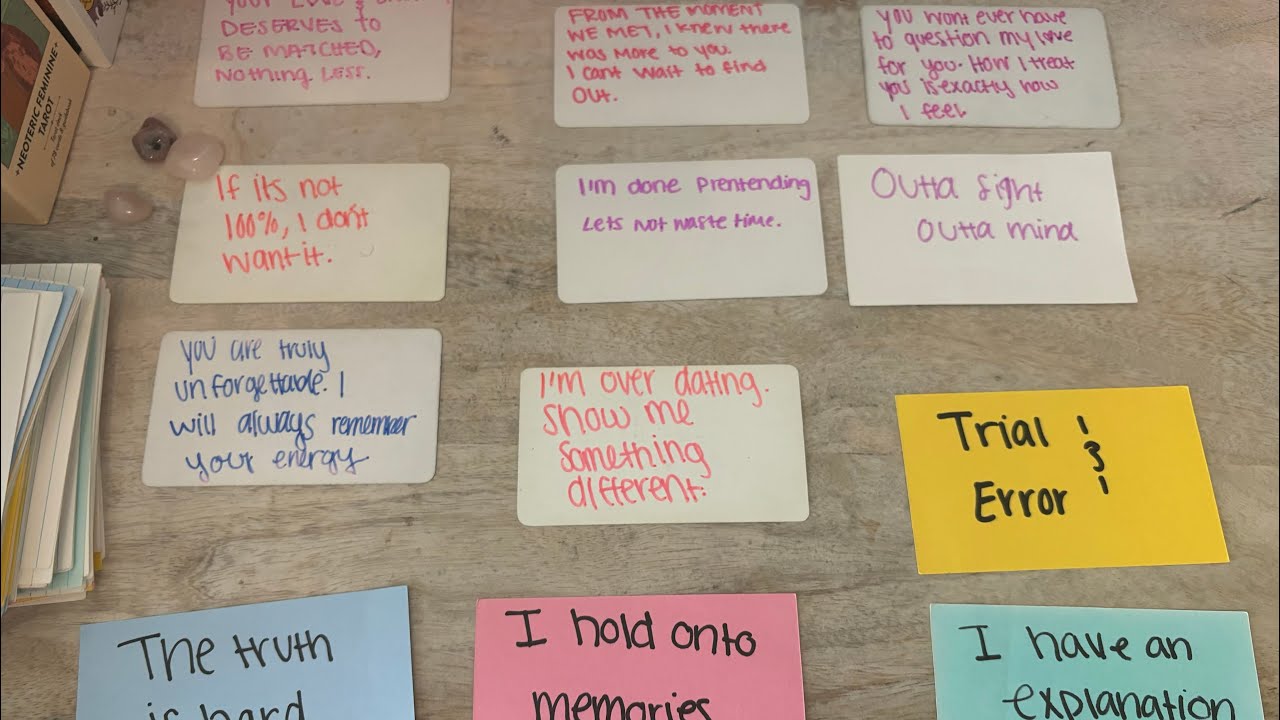 NEOTERIC FEMININE
TAROT
YOUR LOVE &
DESERVES to
BE MATCHED,
NOTHING LESS.
FROM THE MOMENT
WE MET, I KNEW there
was MORE to YOU.
I CANT WAIT to find
OUT.
YOU WONT EVER HAVE
to question my love
for you. HOW I treat
you is exactly how
I feel
If its not
100%, I don't
want it.
I'm done Prentending
Lets not waste time.
Outta Sight
Outta mind
you are truly
unforgettable. I
will always remember
your energy
I'm over dating.
Show me
Something
different.
Trial &
Error
The truth
is hard
I hold onto
memories
I have an
explanation